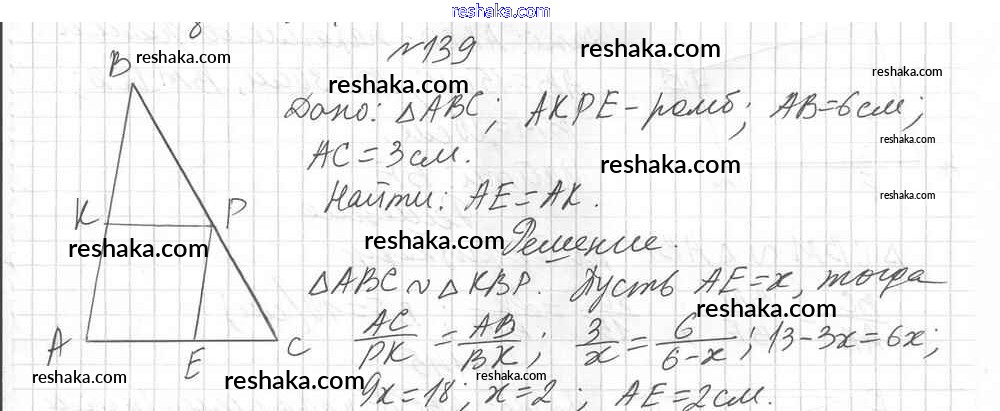 reshaka.com
№139
B reshaka.com reshaka.com
reshaka.com reshaka.com
Дано: △ABC; AKPE - ромб; AB = 6 см;
reshaka.com
AC = 3 см. reshaka.com
Найти: AE = AK. reshaka.com
K P reshaka.com Решение.
reshaka.com
△ABC ~ △KBP. Пусть AE = x, тогда
reshaka.com
AC/PK = AB/BK; 3/x = 6/(6-x); 13 - 3x = 6x;
A E C
reshaka.com reshaka.com reshaka.com
9x = 18; x = 2; AE = 2 см.